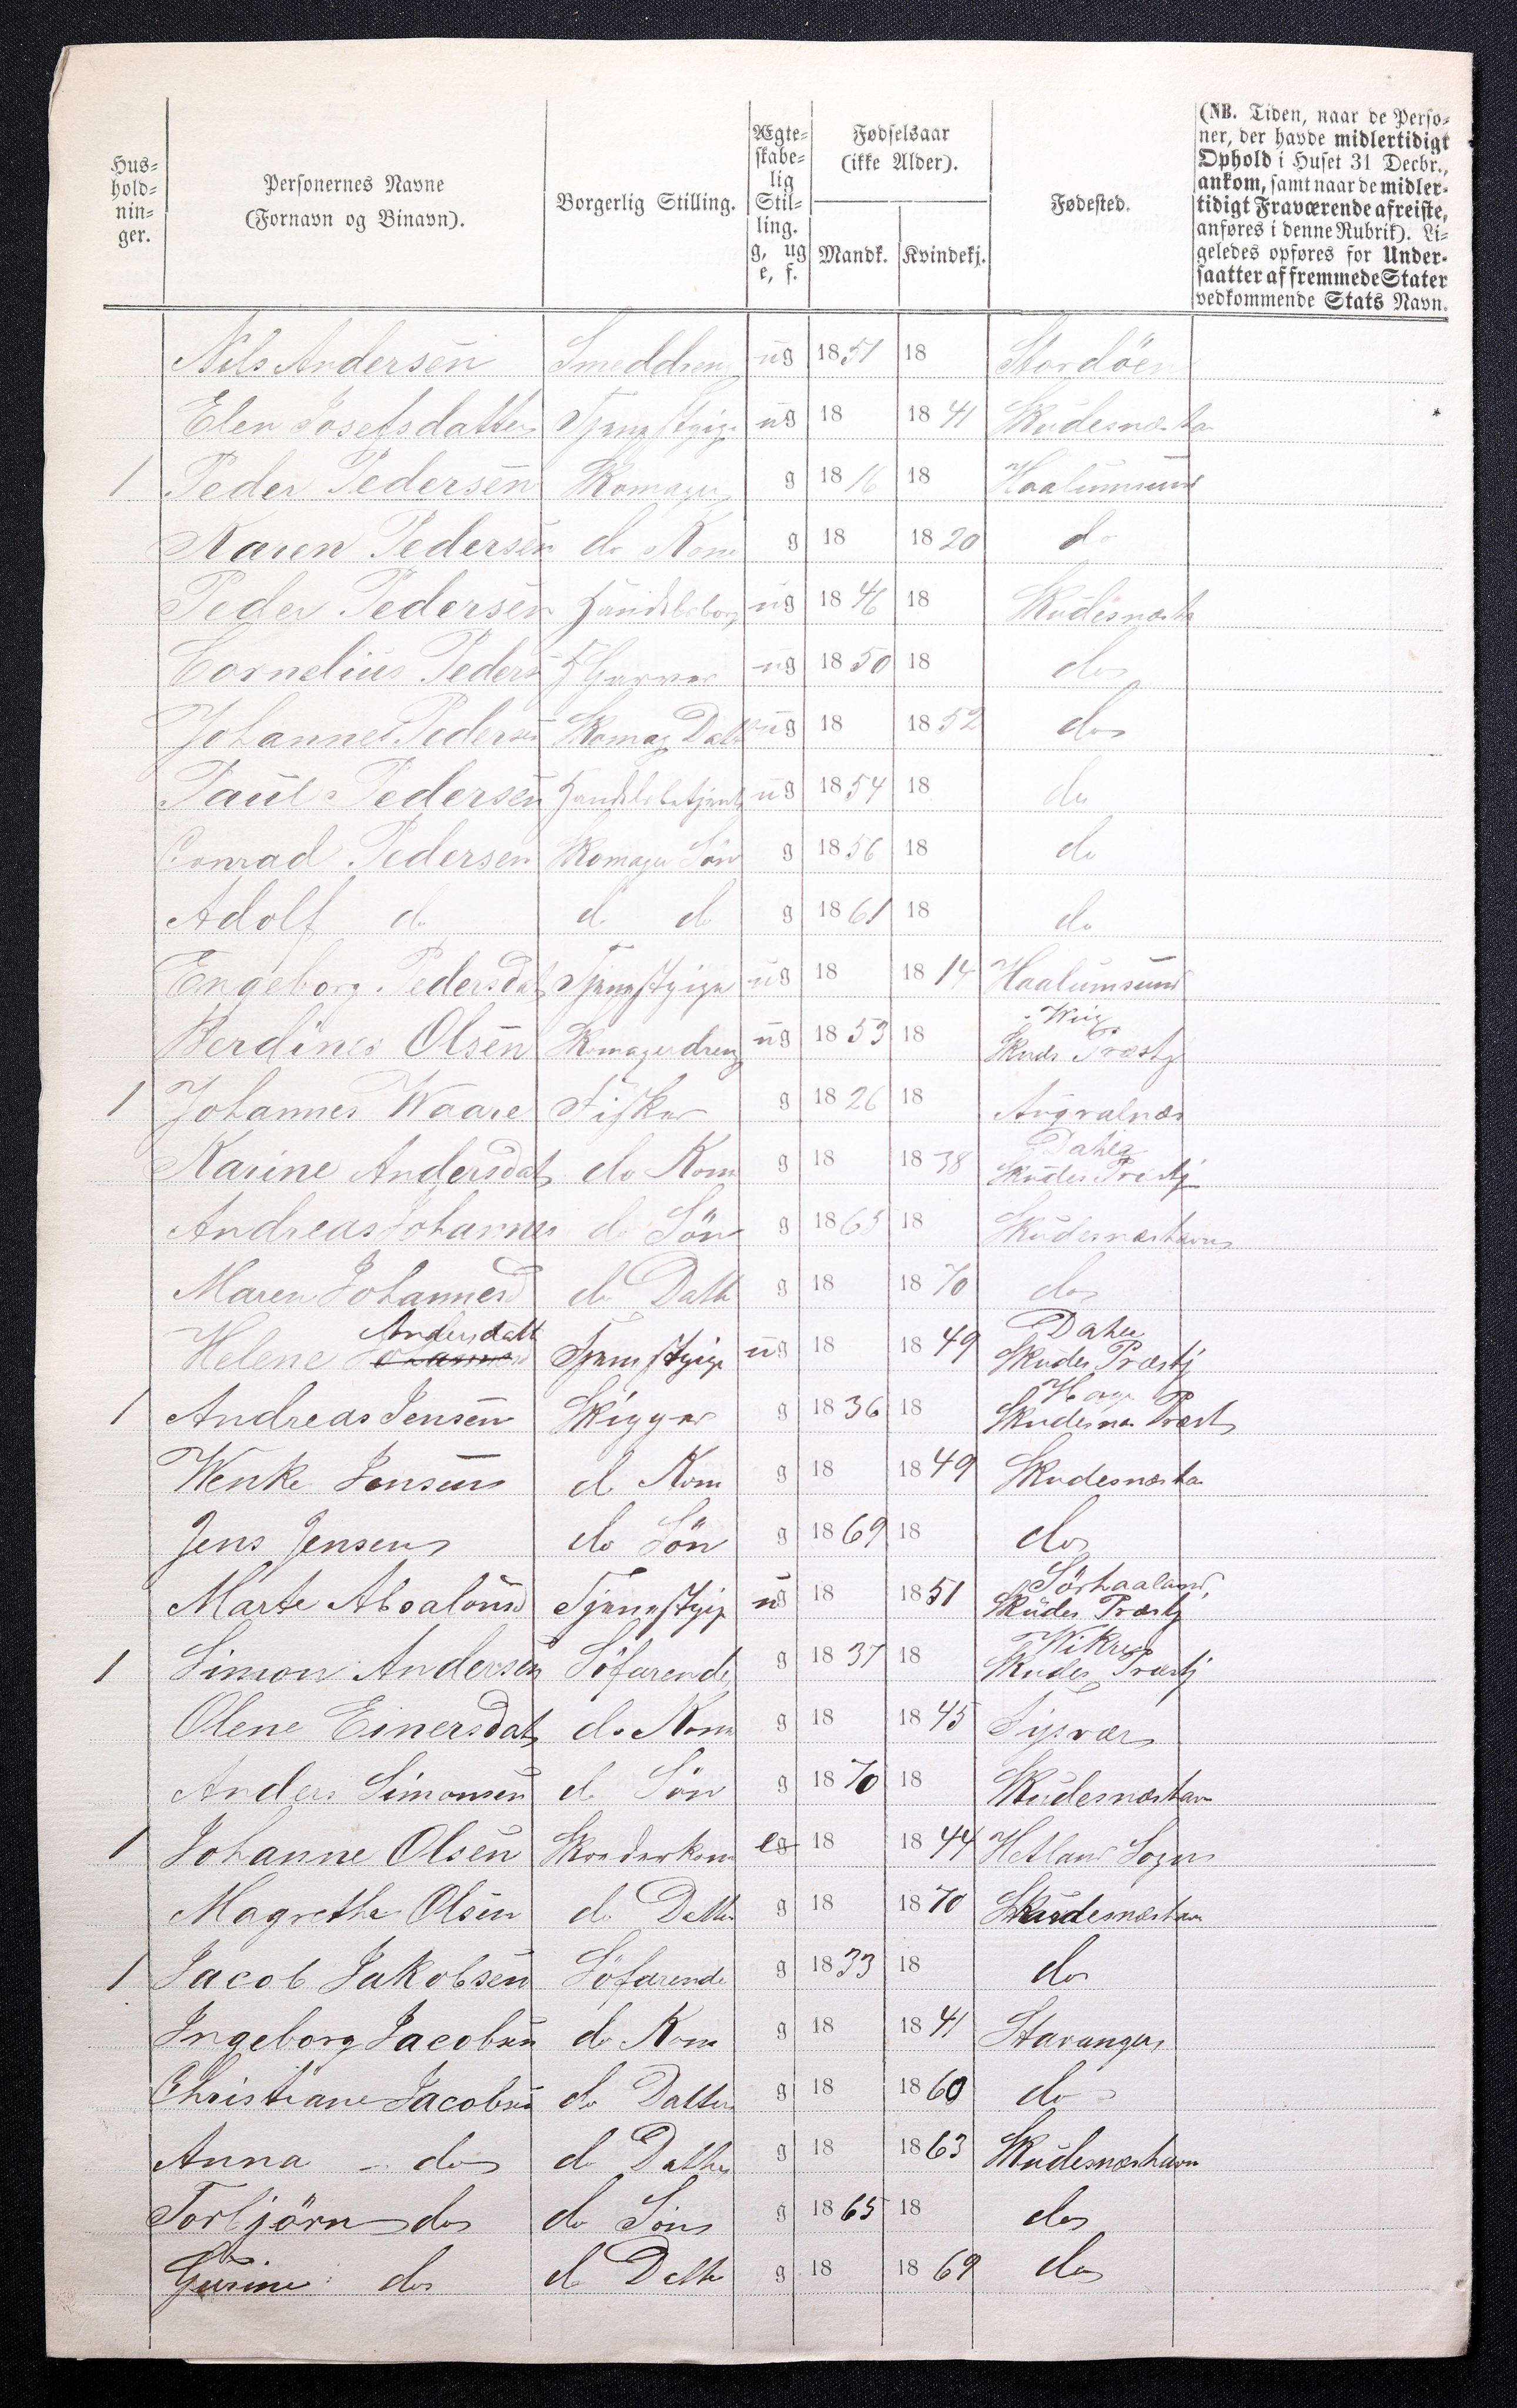 Hus-
hold-
nin-
ger.
Personernes Navne
(Fornavn og Binavn).
Borgerlig Stilling.
Ægte-
skabe-
lig
Stil-
ling.
g, ug
e, f.
Fødselsaar
(ikke Alder).
Mandk. Kvindekj.
Fødested.
(NB. Tiden, naar de Perso-
ner, der havde midlertidigt
Ophold i Huset 31 Decbr.,
ankom, samt naar de midler-
tidigt Fraværende afreiste,
anføres i denne Rubrik). Li-
geledes opføres for Under-
saatter af fremmede Stater
vedkommende Stats Navn.
Nils Andersen Smeddreng ug 1851 18 Stordöen
Elen Josefsdatter Tjenestpige ug 18 1841 Skudesnæsha
1 Peder Pedersen Skomager g 1816 18 Haalumsund
Karen Pedersen do Kone g 18 1820 do
Peder Pedersen Handelsborg ug 1846 18 Skudesnæsh
Cornelius Peders Garver ug 1850 18 do
Johanne Pedersen Skomag Datt ug 18 1852 do
Paul Pedersen Handelsbetjent ug 1854 18 do
Conrad Pedersen Skomager Sön g 1856 18 do
Adolf do do do g 1861 18 do
Engeborg Pedersdat Tjenestpige ug 18 1814 Haalumsund
Berdines Olsen Skomagerdreng ug 1853 18 Skuds Præstgj
1 Johannes Waare Fisker g 1826 18 Augvalnæs
Karine Andersdat do Kone g 18 1838 Dahle
Skudes Præstgj
Andreas Johannes do Sön g 1865 18 Skudesnæshavn
Maren Johannesd do Datt g 18 1870 do
Andersdatt
Helene Johannesd Tjenestpige ug 18 1849 Dahle
Skudes Præstgj
1 Andreas Jensen Skipper g 1836 18 Skudesnæs Præst
Wenke Jensen do Kone g 18 1849 Skudesnæsha
Jens Jensen do Sön g 1869 18 do
Marte Absalonsd Tjenestpige ug 18 1851 Sörhaaland
Skudes Præstgj
1 Simon Andersen Söfarende g 1837 18 Wikre
Skudes Præstgj
Olene Einersdat do Kone g 18 1845 Tysvær
Anders Simonsen do Sön g 1870 18 Skudesnæshavn
1 Johanne Olsen Skrederkone eg 18 1844 Hetland Sogn
Magrethe Olsen do Datter g 18 1870 Skudesnæshavn
1 Jacob Jakobsen Söfarende g 1833 18 do
Ingeborg Jacobsen do Kone g 18 1841 Stavanger
Christiane Jacobsen do Datter g 18 1860 do
Anna - do do Datter g 18 1863 Skudesnæshavn
Torbjörn do do Sön g 1865 18 do
Gurine do do Datter g 18 1869 do